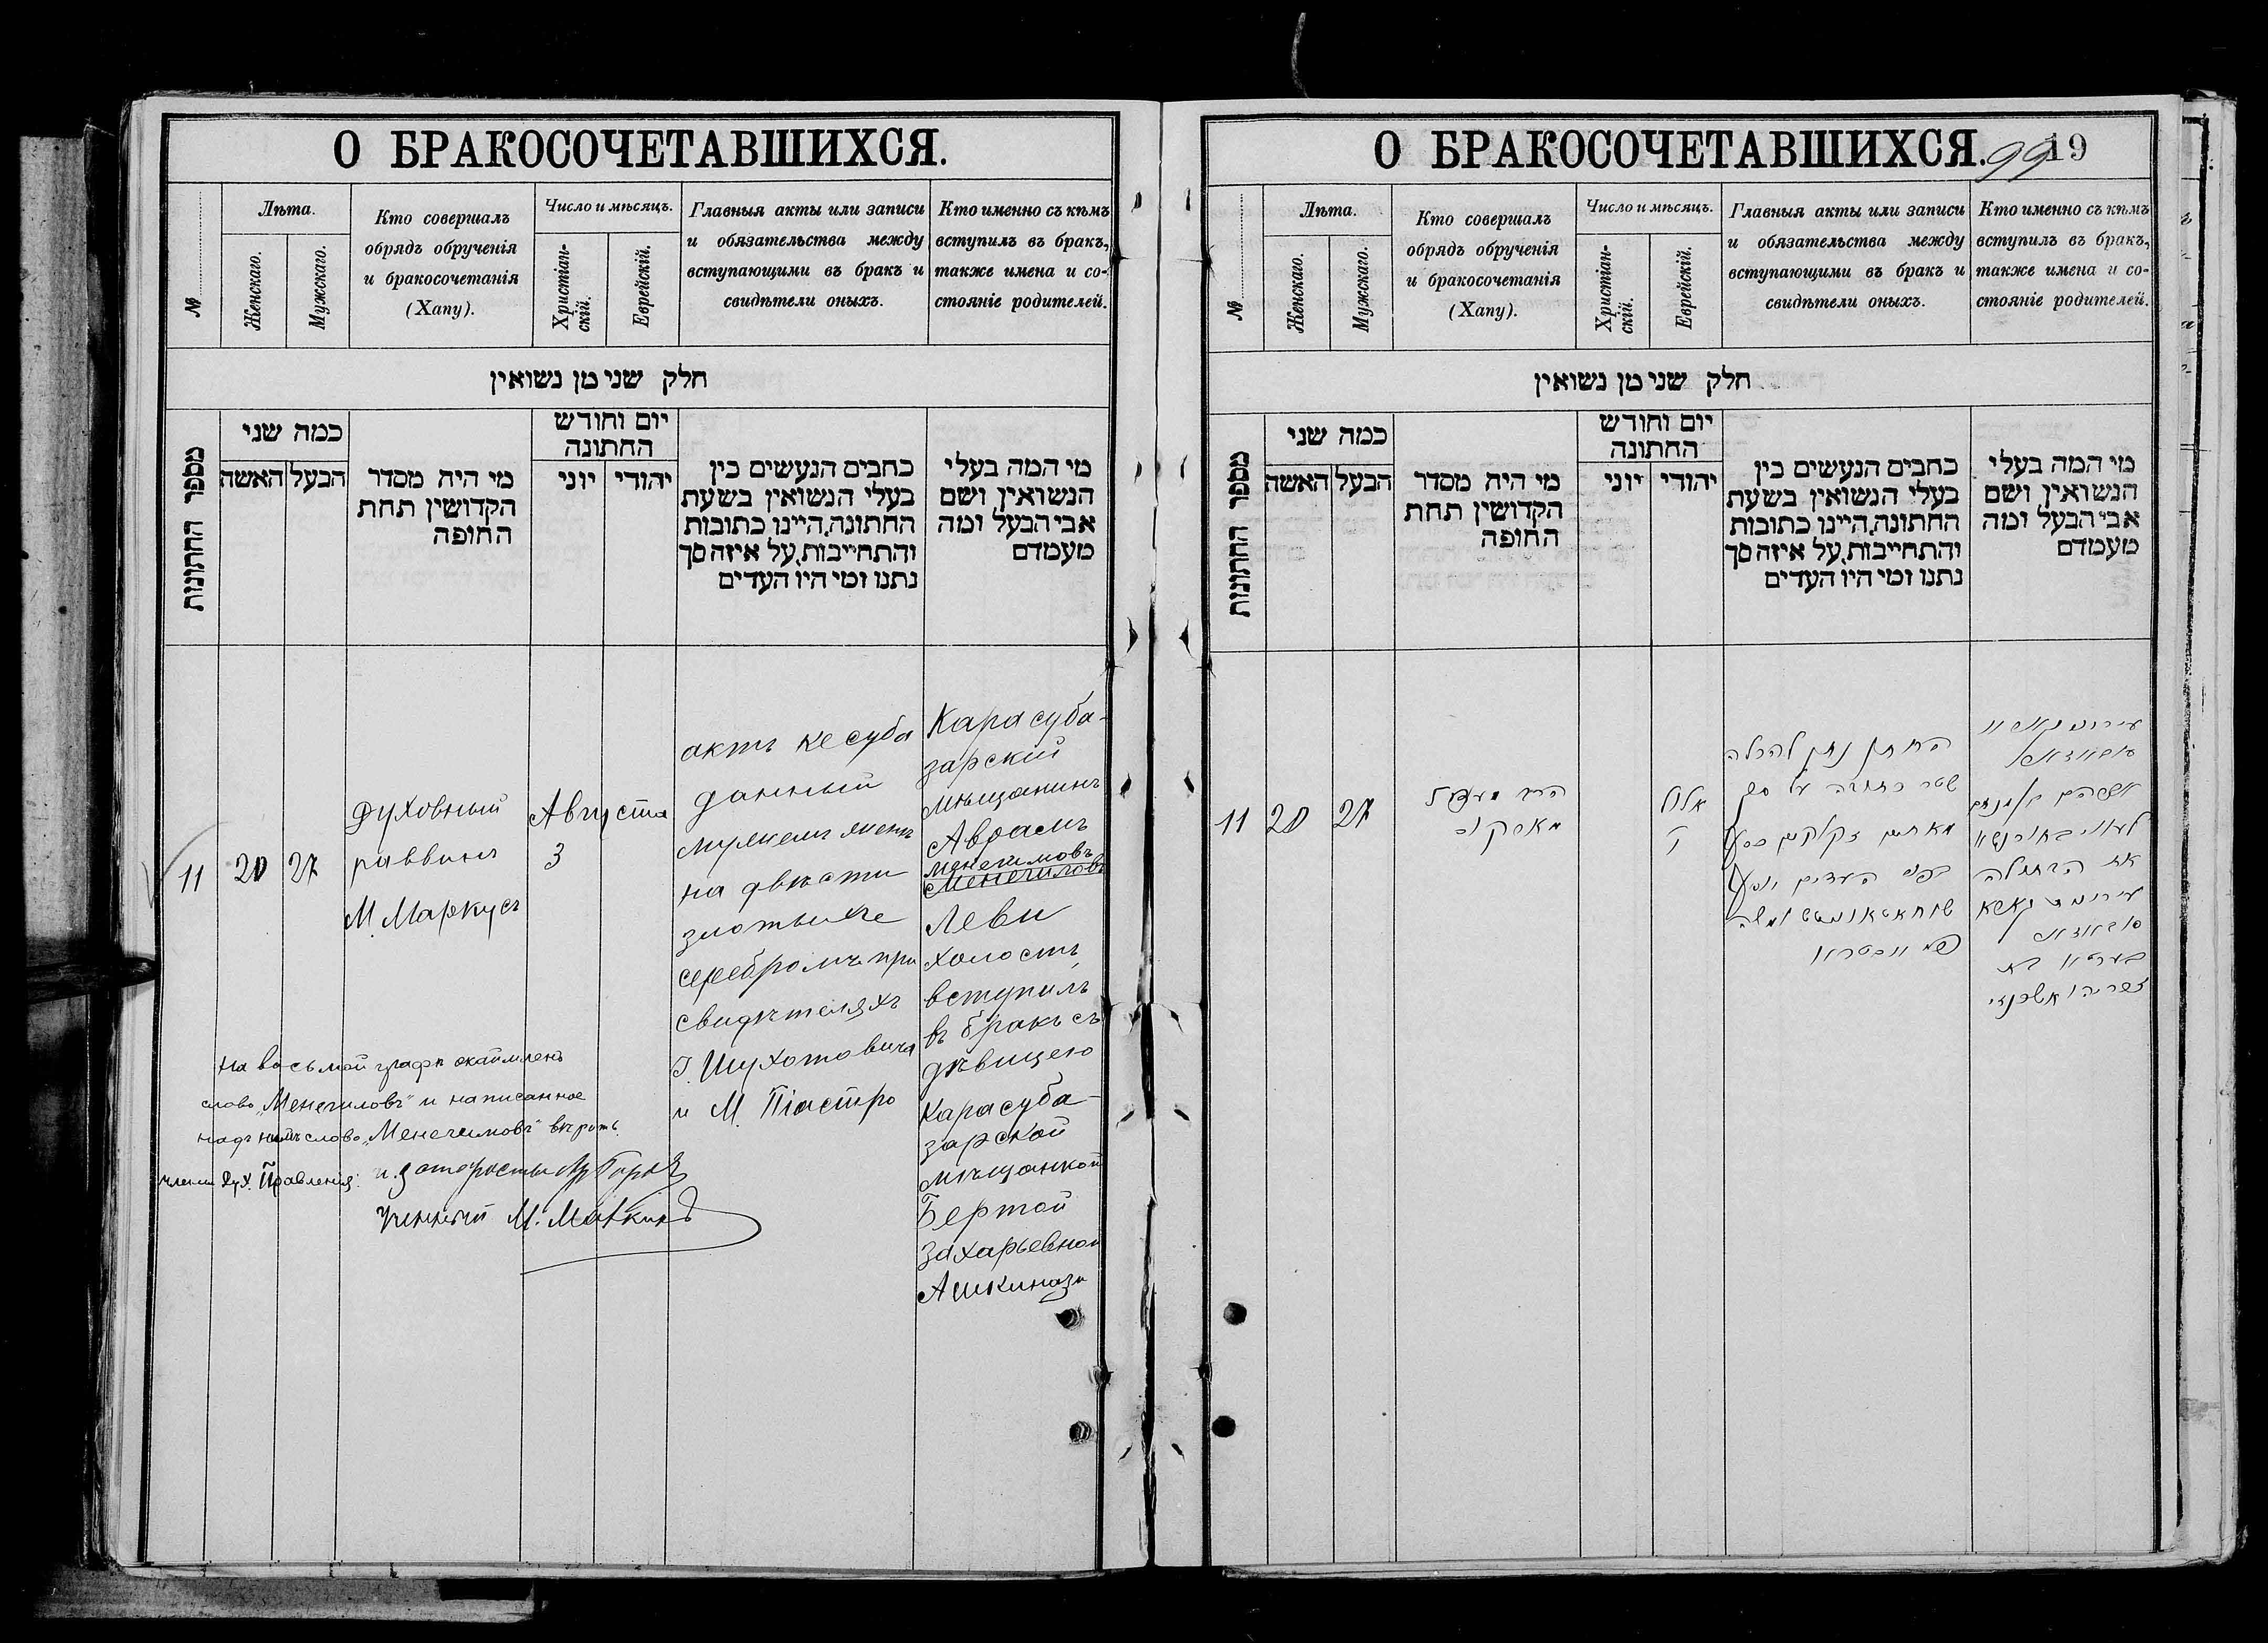 О БРАКОСОЧЕТАВШИХСЯ.
№
Лѣта.
Женскаго.
Мужскаго.
Кто совершалъ
обрядъ обрученія
и бракосочетанія
(Хапу).
Число и мѣсяцъ.
Христіан-
скій.
Еврейскій.
Главныя акты или записи
и обязательства между
вступающими въ бракъ и
свидѣтели оныхъ.
Кто именно съ кѣмъ
вступилъ въ бракъ,
также имена и со-
стояніе родителей.
חלק שני מן נשואין
מספר החתונות
כמה שני
האשה
הבעל
מי היה מסדר
הקדושין תחת
החופה
יום וחודש
החתונה
יוני
יהודי
כתבים הנעשים בין
בעלי הנשואין בשעת
החתונה,היינו כתובות
והתחייבות,על איזה סך
נתנו ומי היו העדים
מי המה בעלי
הנשואין ושם
אבי הבעל ומה
מעמדם
11
20
27
Духовный
раввинъ
М. Маркусъ
Августа
3
актъ кесуба
данный
мужемъ женѣ
на двѣсти
злотыхъ
серебромъ при
свидѣтеляхъ
І. Шухотовича
и М. Піастро
Карасуба-
зарскій
мѣщанинъ
Авраамъ
Менехимовъ
Менечиловъ
Леви
холостъ,
вступилъ
въ бракъ съ
дѣвицею
Карасуба-
зарской
мѣщанкой
Бертой
Захарьевной
Ашкинази
На восьмой графѣ окаймленъ
слово „Менечиловъ" и написанное
надъ нимъ слово „Менехимовъ" вѣрить.
члены Дух. Правленія:
Ученый М. Маткинъ
О БРАКОСОЧЕТАВШИХСЯ.
99
19
№
Лѣта.
Женскаго.
Мужскаго.
Кто совершалъ
обрядъ обрученія
и бракосочетанія
(Хапу).
Число и мѣсяцъ.
Христіан-
скій.
Еврейскій.
Главныя акты или записи
и обязательства между
вступающими въ бракъ и
свидѣтели оныхъ.
Кто именно съ кѣмъ
вступилъ въ бракъ,
также имена и со-
стояніе родителей.
חלק שני מן נשואין
מספר החתונות
כמה שני
האשה
הבעל
מי היה מסדר
הקדושין תחת
החופה
יום וחודש
החתונה
יוני
יהודי
כתבים הנעשים בין
בעלי הנשואין בשעת
החתונה,היינו כתובות
והתחייבות,על איזה סך
נתנו ומי היו העדים
מי המה בעלי
הנשואין ושם
אבי הבעל ומה
מעמדם
11
20
27
הרב
מארקוס
אלול
החתן נתן להכלה
שטר כתובה על סך
מאתים זקוקים כסף
בפני העדים יוסף
ומשה
אברהם בן מנחם
לעווי
את הבתולה
בערטא בת
זכריה אשכנזי